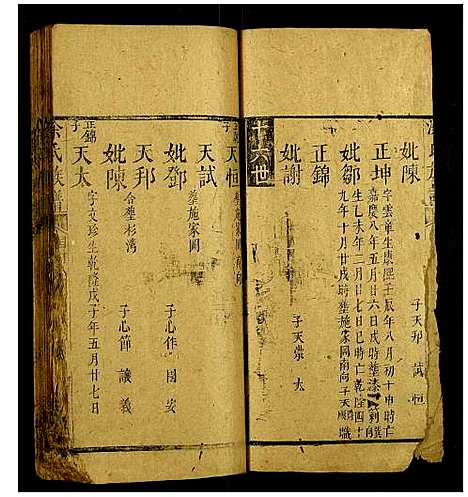 妣陳
子天邦 試 恒
正坤
字雲章生康熙壬辰年八月初十申時亡
嘉慶八年五月廿六日戌時葬漆
妣鄒
生乙未年二月廿七日巳時亡乾隆四十
九年十月廿戌時葬施家岡南向子天順 職
正錦
子天崇 太
妣謝
十六世
天恒
天試
葬施家岡
妣鄧
子心作 國安
天邦
仝葬杉湾
妣陳
子心節 議 義
正錦子
天太
字文珍生乾隆戊子年五月廿七日
余氏族譜